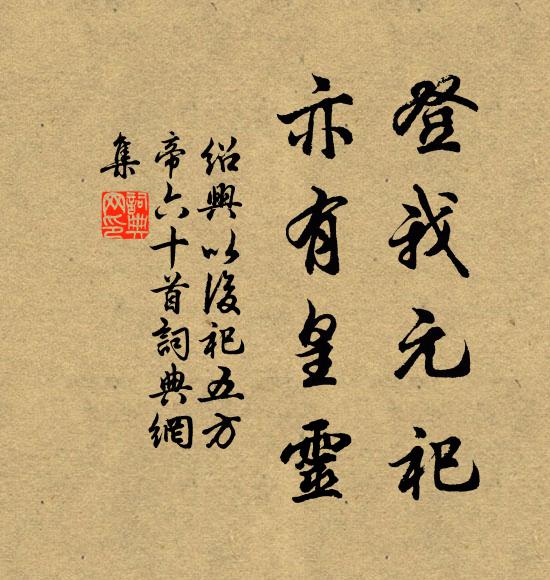 登我元祀
亦有皇靈
紹興以後祀五方
帝六十首詞典網
集
詞典
网印